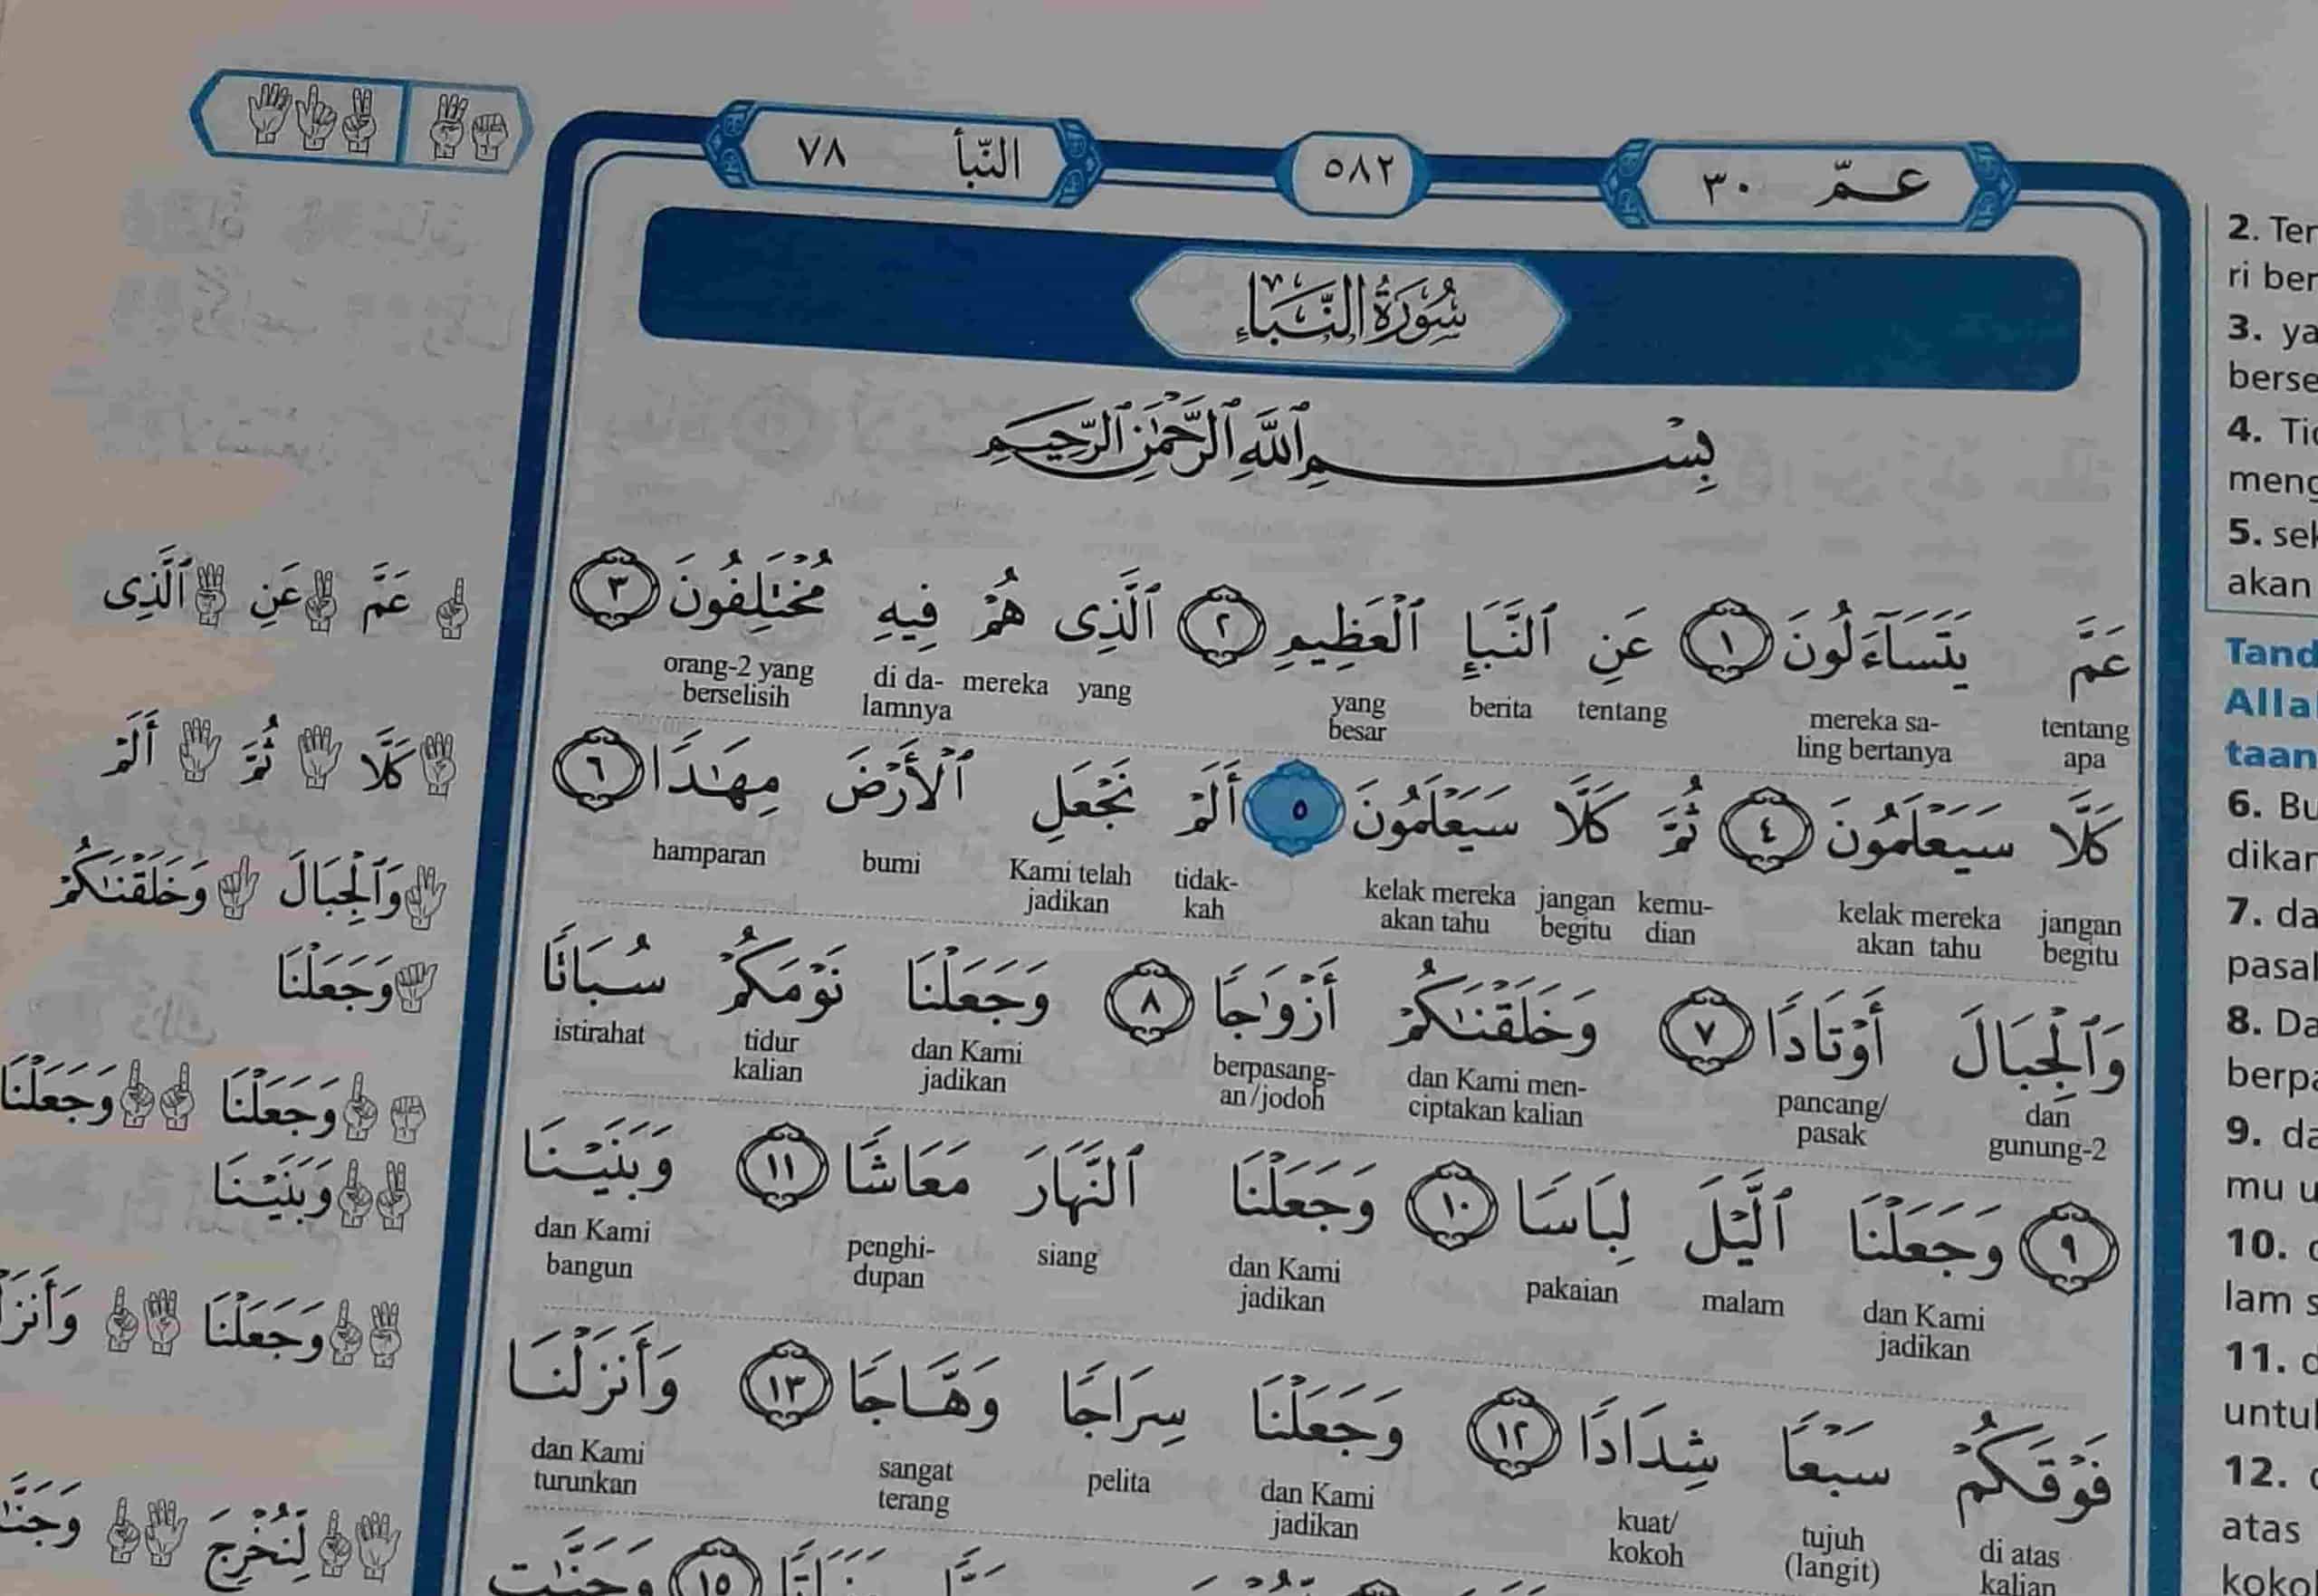 عـمّ ٣٠
٥٨٢
النّبأ ٧٨
سُورَةُ النَّبَاءِ
بِسْمِ ٱللَّهِ ٱلرَّحْمَٰنِ ٱلرَّحِيمِ
عَمَّ يَتَسَآءَلُونَ ١ عَنِ ٱلنَّبَإِ ٱلْعَظِيمِ ٢ ٱلَّذِى هُمْ فِيهِ مُخْتَلِفُونَ ٣
tentang apa mereka sa-ling bertanya tentang berita yang besar yang mereka di da-lamnya orang-2 yang berselisih
كَلَّا سَيَعْلَمُونَ ٤ ثُمَّ كَلَّا سَيَعْلَمُونَ ٥ أَلَمْ نَجْعَلِ ٱلْأَرْضَ مِهَٰدًا ٦
jangan begitu kelak mereka akan tahu kemu-dian jangan begitu kelak mereka akan tahu tidak-kah Kami telah jadikan bumi hamparan
وَٱلْجِبَالَ أَوْتَادًا ٧ وَخَلَقْنَٰكُمْ أَزْوَٰجًا ٨ وَجَعَلْنَا نَوْمَكُمْ سُبَاتًا
dan gunung-2 pancang/pasak dan Kami men-ciptakan kalian berpasang-an/jodoh dan Kami jadikan tidur kalian istirahat
٩ وَجَعَلْنَا ٱلَّيْلَ لِبَاسًا ١٠ وَجَعَلْنَا ٱلنَّهَارَ مَعَاشًا ١١ وَبَنَيْنَا
dan Kami jadikan malam pakaian dan Kami jadikan siang penghi-dupan dan Kami bangun
فَوْقَكُمْ سَبْعًا شِدَادًا ١٢ وَجَعَلْنَا سِرَاجًا وَهَّاجًا ١٣ وَأَنزَلْنَا
di atas kalian tujuh (langit) kuat/kokoh dan Kami jadikan pelita sangat terang dan Kami turunkan
١٥ وَجَنَّٰتٍ
عَمَّ عَنِ ٱلَّذِى
كَلَّا ثُمَّ أَلَمْ
وَٱلْجِبَالَ وَخَلَقْنَٰكُمْ
وَجَعَلْنَا
وَجَعَلْنَا وَجَعَلْنَا
وَبَنَيْنَا
وَجَعَلْنَا
لِّنُخْرِجَ
2.
ri
3.
4.
5.
akan
6.
7.
8.
9.
mu
10.
lam
11.
12.
atas